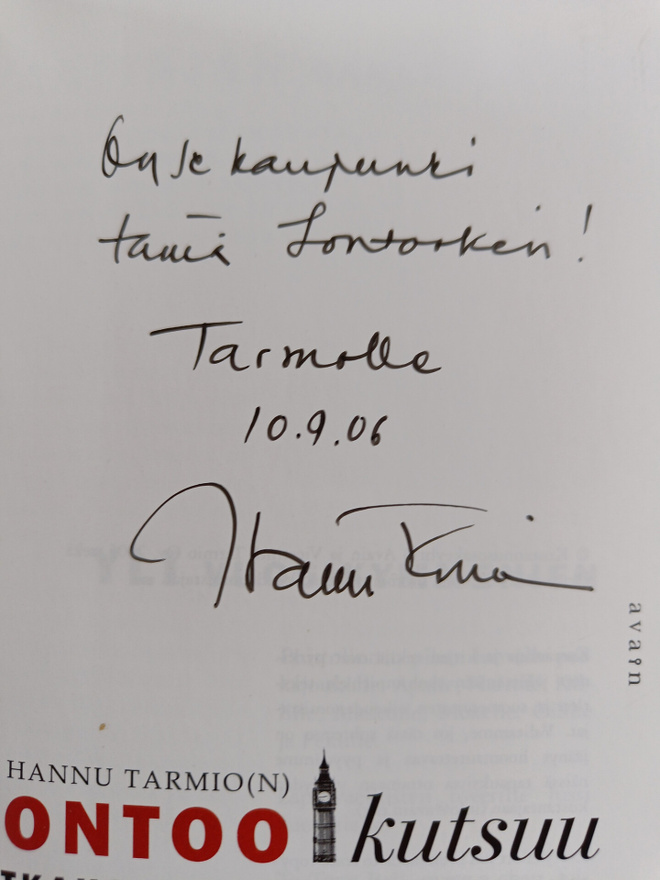 On se kaupunki
tämä Lontookin!
Tarmolle
10.9.06
Hannu Tarmio
avain
HANNU TARMIO(N)
ONTOO kutsuu